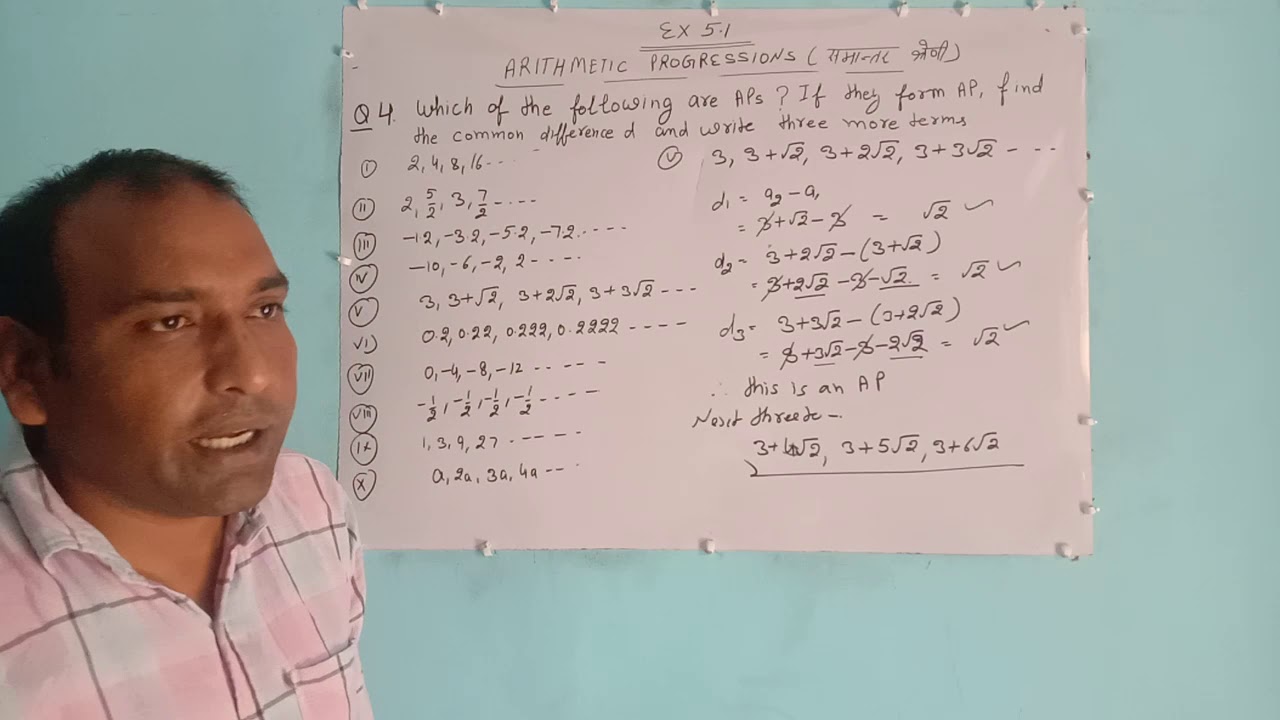 EX 5.1
ARITHMETIC PROGRESSIONS (समान्तर श्रेणी)
Q4. Which of the following are APs ? If they form AP, find
the common difference d and write three more terms
(i) 2, 4, 8, 16 - - -
(ii) 2, 5/2, 3, 7/2 - - - -
(iii) -1.2, -3.2, -5.2, -7.2 - - - -
(iv) -10, -6, -2, 2 - - - -
(v) 3, 3+√2, 3+2√2, 3+3√2 - - -
(vi) 0.2, 0.22, 0.222, 0.2222 - - - -
(vii) 0, -4, -8, -12 - - - - -
(viii) -1/2, -1/2, -1/2, -1/2 - - - -
(ix) 1, 3, 9, 27 - - - - -
(x) a, 2a, 3a, 4a - - -
(v) 3, 3+√2, 3+2√2, 3+3√2 - - - -
d₁ = a₂ - a₁
= 3+√2-3 = √2 ✓
d₂ = 3+2√2-(3+√2)
= 3+2√2-3-√2 = √2 ✓
d₃ = 3+3√2-(3+2√2)
= 3+3√2-3-2√2 = √2 ✓
∴ this is an AP
Next three te-
3+4√2, 3+5√2, 3+6√2